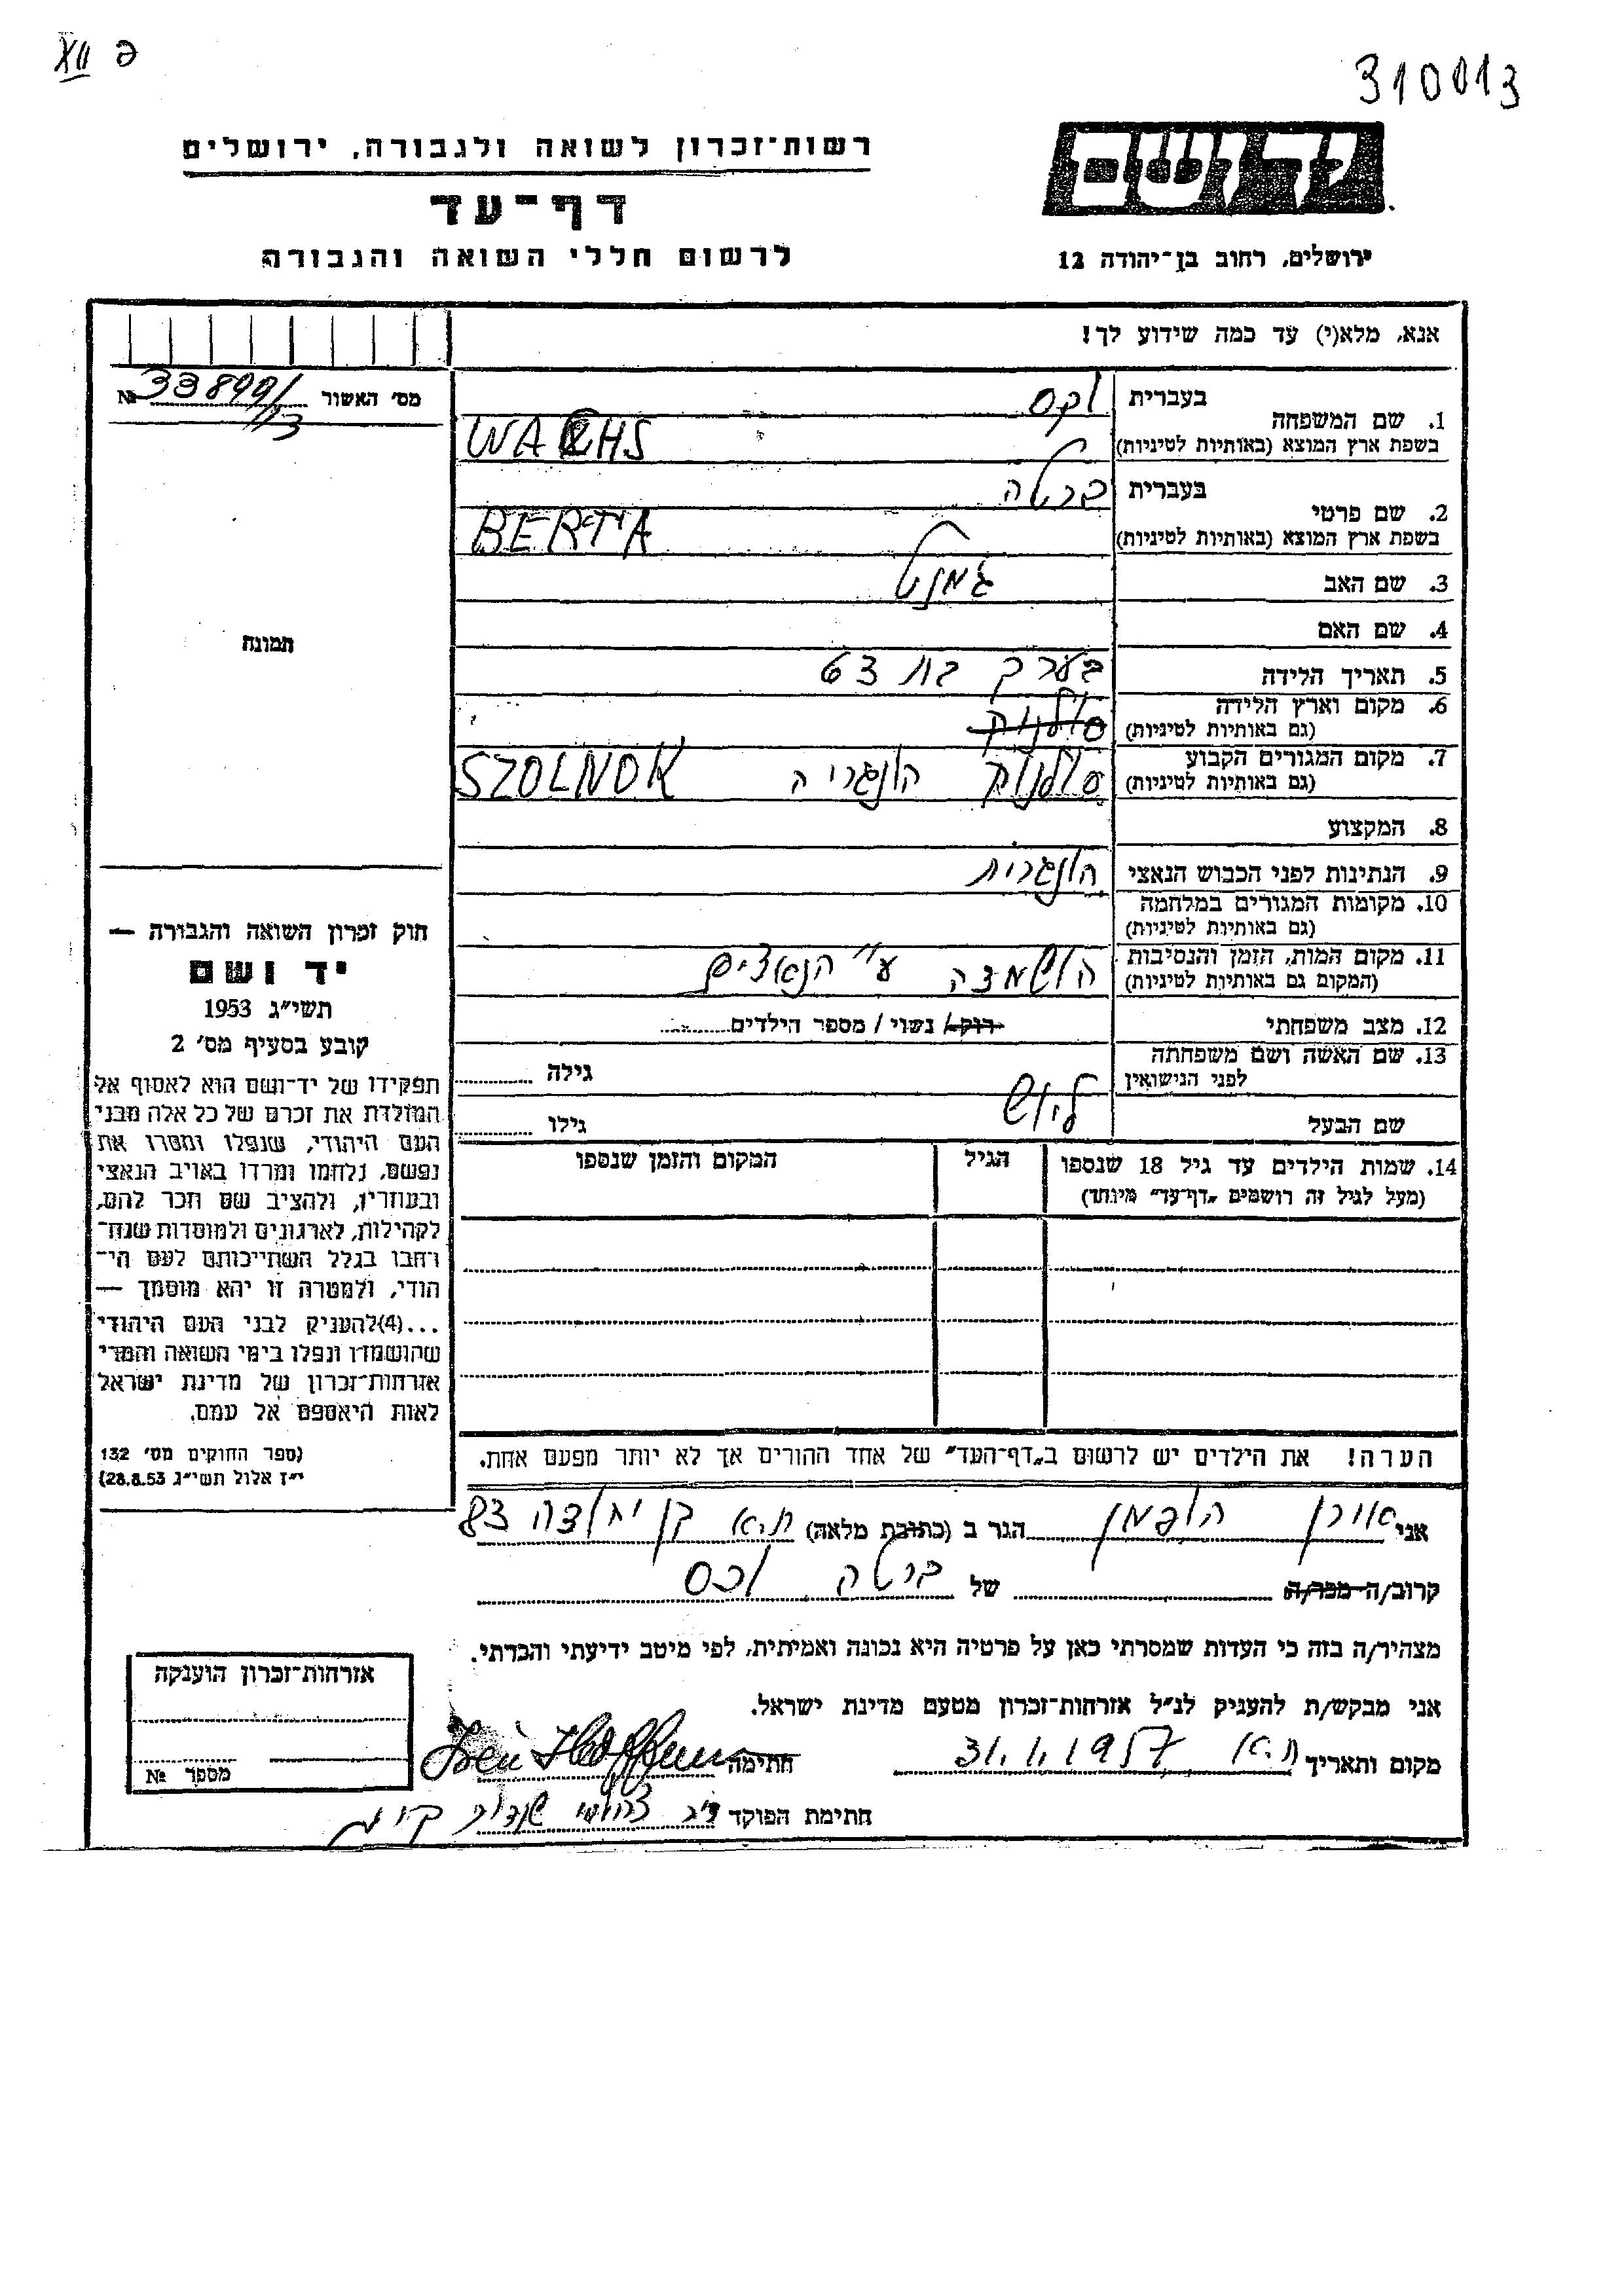 XII פ
310013
רשות־זכרון לשואה ולגבורה, ירושלים
דף־עד
לרשום חללי השואה והגבורה
יד ושם
ירושלים, רחוב בן־יהודה 12
אנא, מלא(י) עד כמה שידוע לך!
מס׳ האשור № 33899/13
תמונה
1. שם המשפחה
בעברית וקס
בשפת ארץ המוצא (באותיות לטיניות) WACHS
2. שם פרטי
בעברית ברטה
בשפת ארץ המוצא (באותיות לטיניות) BERTA
3. שם האב
4. שם האם
5. תאריך הלידה בערך בת 63
6. מקום וארץ הלידה סולנוק
(גם באותיות לטיניות)
7. מקום המגורים הקבוע סולנוק הונגריה SZOLNOK
(גם באותיות לטיניות)
8. המקצוע
9. הנתינות לפני הכבוש הנאצי הונגרית
10. מקומות המגורים במלחמה
(גם באותיות לטיניות)
11. מקום המות, הזמן והנסיבות הושמדה ע״י הנאצים
(המקום גם באותיות לטיניות)
12. מצב משפחתי רוק/ נשוי / מספר הילדים
13. שם האשה ושם משפחתה
לפני הנישואין
גילה
שם הבעל ליוש
גילו
14. שמות הילדים עד גיל 18 שנספו
(מעל לגיל זה רושמים „דף־עד״ מיוחד)
הגיל
המקום והזמן שנספו
הערה! את הילדים יש לרשום ב„דף־העד״ של אחד ההורים אך לא יותר מפעם אחת.
חוק זכרון השואה והגבורה —
יד ושם
תשי״ג 1953
קובע בסעיף מס׳ 2
תפקידו של יד־ושם הוא לאסוף אל
המולדת את זכרם של כל אלה מבני
העם היהודי, שנפלו ומסרו את
נפשם, נלחמו ומרדו באויב הנאצי
ובעוזריו, ולהציב שם וזכר להם,
לקהילות, לארגונים ולמוסדות שנח־
רבו בגלל השתייכותם לעם הי־
הודי, ולמטרה זו יהא מוסמך —
...(4)להעניק לבני העם היהודי
שהושמדו ונפלו בימי השואה והמרי
אזרחות־זכרון של מדינת ישראל
לאות היאספם אל עמם.
(ספר החוקים מס׳ 132
י״ז אלול תשי״ג 28.8.53)
אני אורן הופמן הגר ב (כתובת מלאה) ת.א בן יהודה 83
קרוב/ה מכר/ה של ברטה וכס
מצהיר/ה בזה כי העדות שמסרתי כאן על פרטיה היא נכונה ואמיתית, לפי מיטב ידיעתי והכרתי.
אני מבקש/ת להעניק לנ״ל אזרחות־זכרון מטעם מדינת ישראל.
מקום ותאריך ת.א 31.1.1957 חתימה
חתימת הפוקד
אזרחות־זכרון הוענקה
מספר №